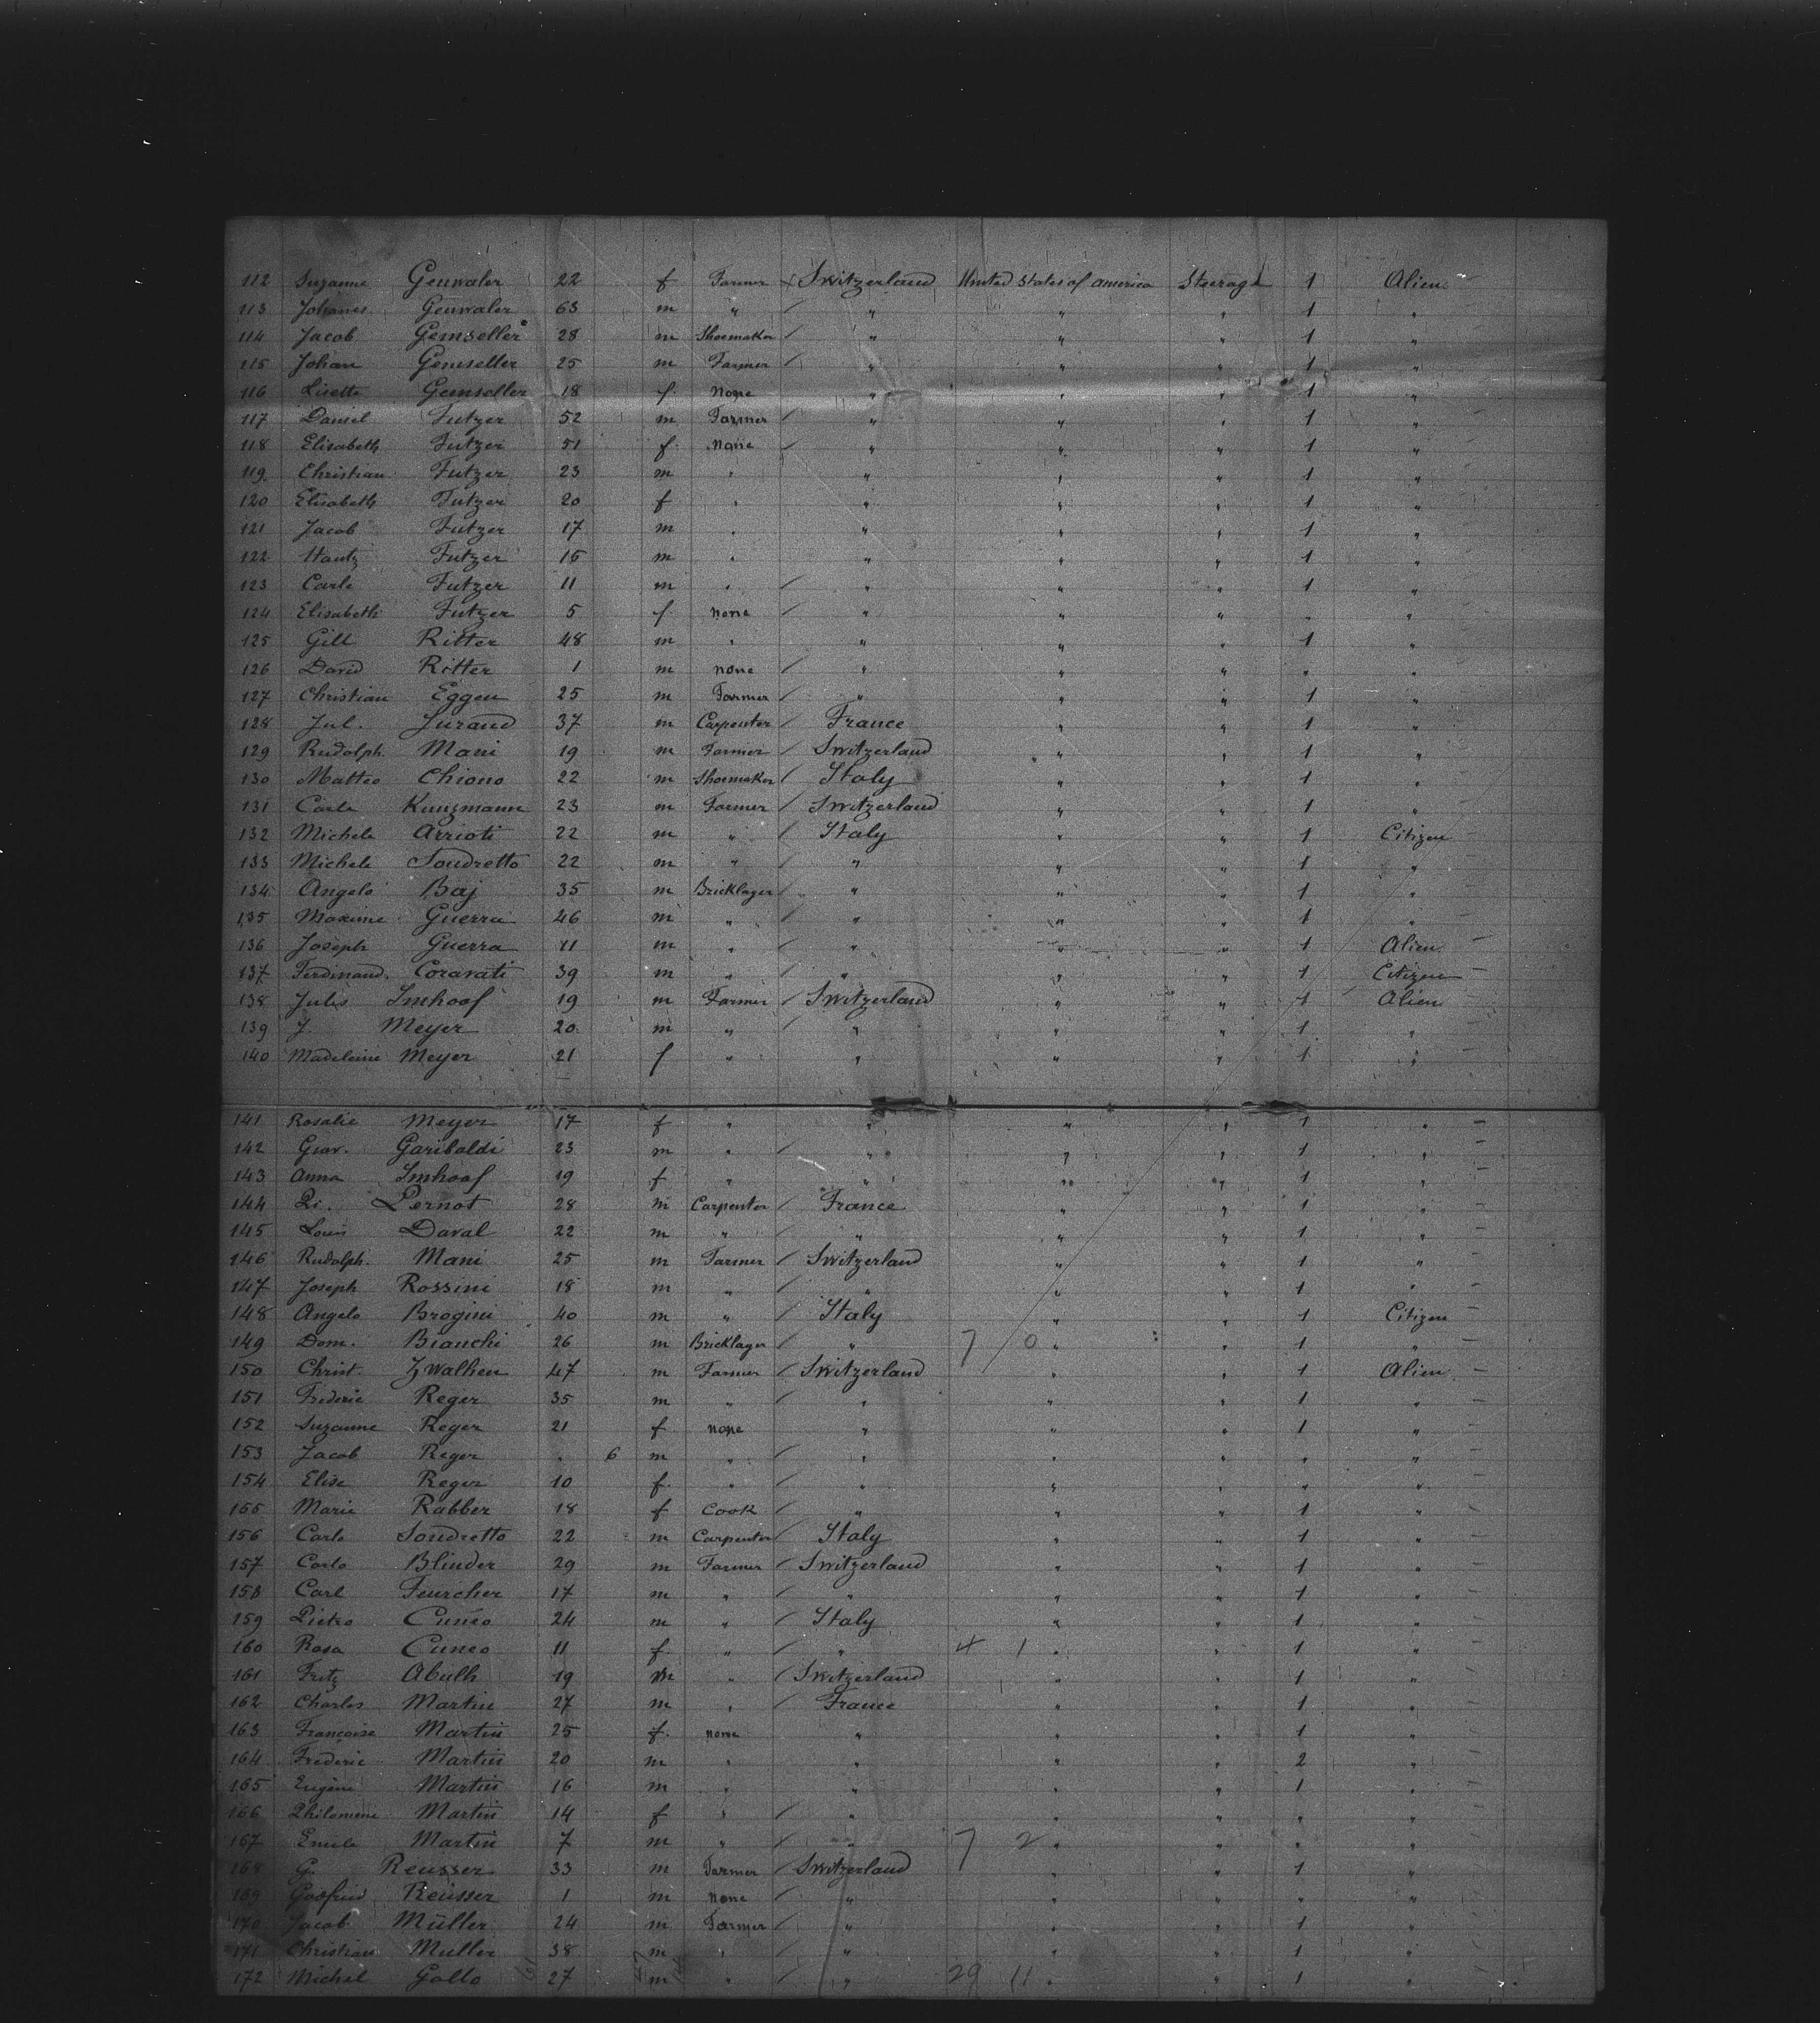 112 Suzanne Genwaler 22 f Farmer Switzerland United States of america Steerage 1 Alien
113 Johanes Genwaler 63 m " " " " 1 "
114 Jacob Gemseller 28 m Shoemaker " " " 1 "
115 Johan Gemseller 25 m Farmer " " " 1 "
116 Lisette Gemseller 18 f. None " " " 1 "
117 Daniel Futzer 52 m Farmer " " " 1 "
118 Elisabeth Futzer 51 f. None " " " 1 "
119 Christian Futzer 23 m " " " " 1 "
120 Elisabeth Futzer 20 f " " " " 1 "
121 Jacob Futzer 17 m " " " " 1 "
122 Futzer 15 m " " " " 1 "
123 Carle Futzer 11 m " " " " 1 "
124 Elisabeth Futzer 5 f none " " " " "
125 Gill Ritter 48 m " " " " 1 "
126 David Ritter 1 m none " " " " "
127 Christian Eggen 25 m Farmer " " " 1 "
128 Jul. Jurand 37 m Carpenter France " " 1 "
129 Rudolph Mani 19 m Farmer Switzerland " " 1 "
130 Matteo Chiono 22 m Shoemaker Italy " " 1 "
131 Carle Kunzmann 23 m Farmer Switzerland " " 1 "
132 Michele Arrioti 22 m " Italy " " 1 Citizen
133 Michele Sondretto 22 m " " " " 1 "
134 Angelo Baj 35 m Bricklayer " " " 1 "
135 Maxime Guerra 46 m " " " " 1 "
136 Joseph Guerra 11 m " " " " 1 Alien
137 Ferdinand Coravati 39 m " " " " 1 Citizen
138 Jules Imhoof 19 m Farmer Switzerland " " 1 Alien
139 J. Meyer 20 m " " " " 1 "
140 Madeleine Meyer 21 f " " " " 1 "
141 Rosalie Meyer 17 f " " " " 1 "
142 Giov. Garibaldi 23 m " " " " 1 "
143 Anna Imhoof 19 f " " " " 1 "
144 Pi. Pernot 28 m Carpenter France " " 1 "
145 Louis Daval 22 m " " " " 1 "
146 Rudolph Mani 25 m Farmer Switzerland " " 1 "
147 Joseph Rossini 18 m " " " " 1 "
148 Angelo Brogini 40 m " Italy " " 1 Citizen
149 Dom. Bianchi 26 m Bricklayer " 7 0 " " 1 "
150 Christ. Zwalhen 47 m Farmer Switzerland " " 1 Alien
151 Frederic Reger 35 m " " " " 1 "
152 Suzanne Reger 21 f none " " " 1 "
153 Jacob Reger " 6 m " " " " " "
154 Elise Reger 10 f. " " " " " "
155 Marie Rabber 18 f Cook " " " 1 "
156 Carlo Sondretto 22 m Carpenter Italy " " 1 "
157 Carlo Blinder 29 m Farmer Switzerland " " 1 "
158 Carl Feurcher 17 m " " " " 1 "
159 Pietro Cuneo 24 m " Italy " " 1 "
160 Rosa Cuneo 11 f. " " 4 1 " " 1 "
161 Fritz Abulh 19 m " Switzerland " " 1 "
162 Charles Martin 27 m " France " " 1 "
163 Françoise Martin 25 f. none " " " 1 "
164 Frederic Martin 20 m " " " " 2 "
165 Eugène Martin 16 m " " " " 1 "
166 Philomene Martin 14 f " " " " " "
167 Emile Martin 7 m " " 7 2 " " " "
168 G. Reusser 33 m Farmer Switzerland " " 1 "
169 Godfried Reusser 1 m None " " " " "
170 Jacob Müller 24 m Farmer " " " 1 "
171 Christian Muller 38 m " " " " 1 "
172 Michel Gallo 27 m " " 29 11 " " 1 "